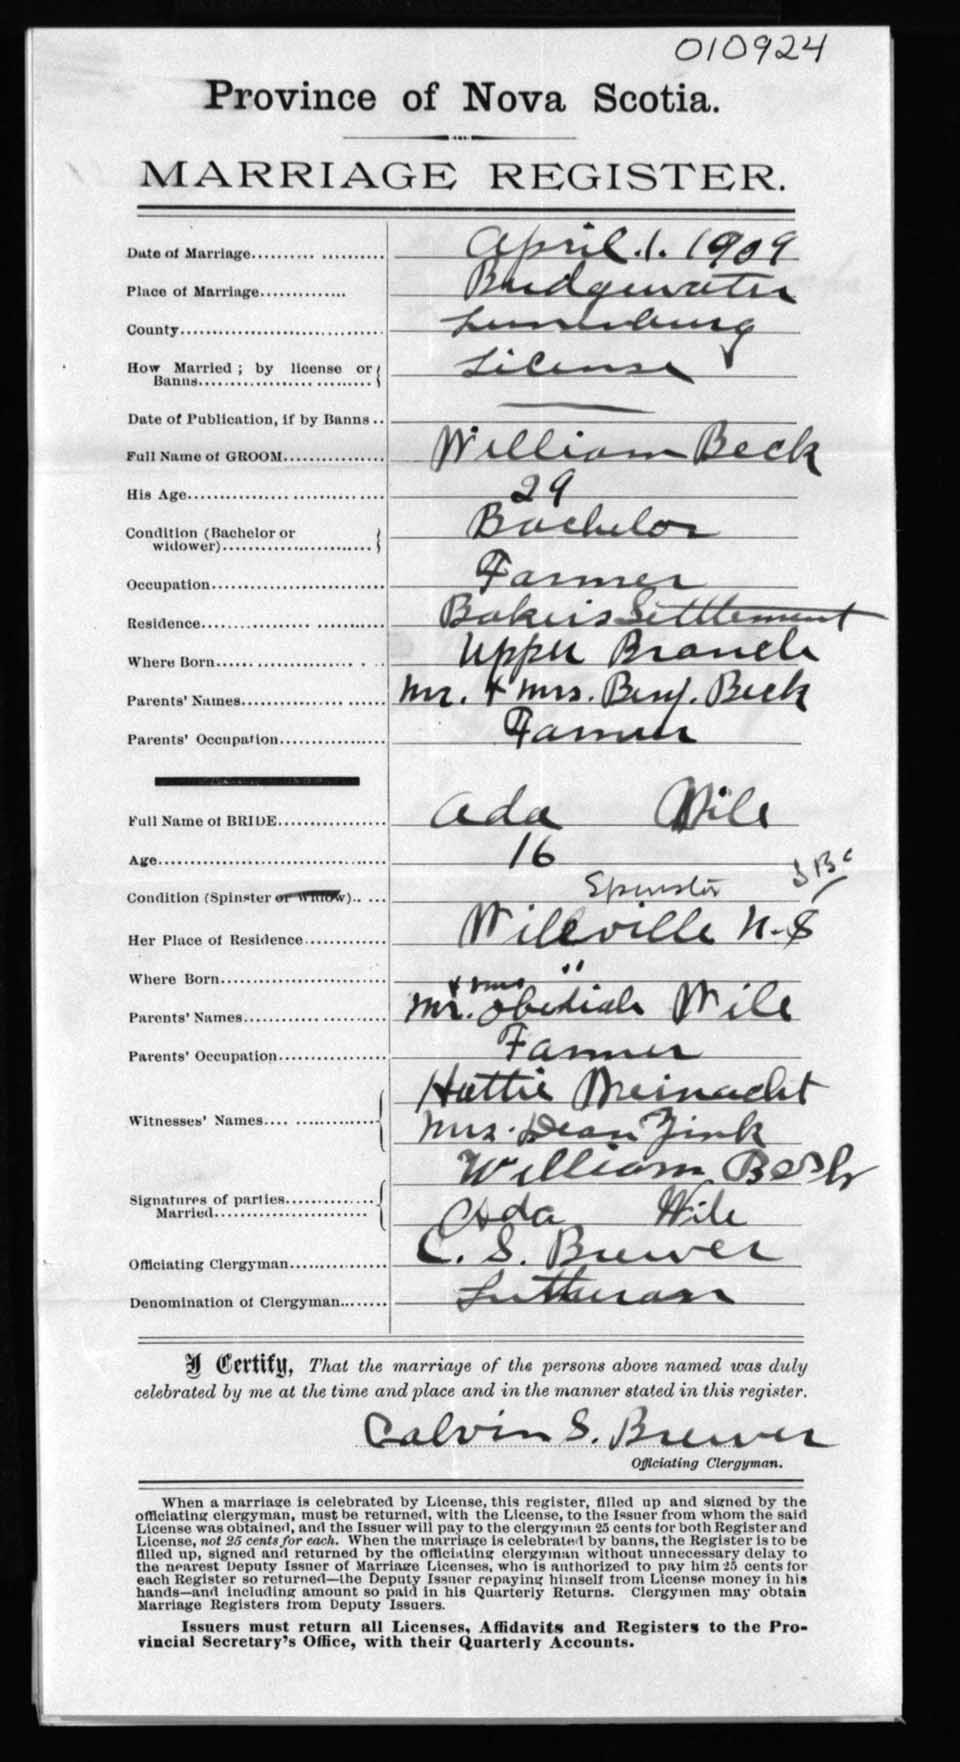 010924
Province of Nova Scotia.
MARRIAGE REGISTER.
Date of Marriage.................... April. 1. 1909
Place of Marriage.............. Bridgewater
County............................... Lunenburg
How Married ; by license or
Banns.......................... License
Date of Publication, if by Banns .. —
Full Name of GROOM................ William Beck
His Age............................... 29
Condition (Bachelor or
widower)........................ Bachelor
Occupation............................ Farmer
Residence........................... Bakers Settlement
Where Born...................... Upper Branch
Parents' Names....................... Mr. & Mrs. Benj. Beck
Parents' Occupation................. Farmer
Full Name of BRIDE................. Ada Wile
Age.................................... 16
Condition (Spinster or widow)..... Spinster
Her Place of Residence............. Wileville N.S
Where Born........................... "
Parents' Names....................... Mr. & Mrs Obediah Wile
Parents' Occupation................. Farmer
Witnesses' Names.................... Hattie Meinacht
Mrs. Dean Zink
Signatures of parties.............. William Beck
Married......................... Ada Wile
Officiating Clergyman............... C. S. Brewer
Denomination of Clergyman........ Lutheran
I Certify, That the marriage of the persons above named was duly
celebrated by me at the time and place and in the manner stated in this register.
Calvin S. Brewer
Officiating Clergyman.
When a marriage is celebrated by License, this register, filled up and signed by the
officiating clergyman, must be returned, with the License, to the Issuer from whom the said
License was obtained, and the Issuer will pay to the clergyman 25 cents for both Register and
License, not 25 cents for each. When the marriage is celebrated by banns, the Register is to be
filled up, signed and returned by the officiating clergyman without unnecessary delay to
the nearest Deputy Issuer of Marriage Licenses, who is authorized to pay him 25 cents for
each Register so returned—the Deputy Issuer repaying himself from License money in his
hands—and including amount so paid in his Quarterly Returns. Clergymen may obtain
Marriage Registers from Deputy Issuers.
Issuers must return all Licenses, Affidavits and Registers to the Pro-
vincial Secretary's Office, with their Quarterly Accounts.